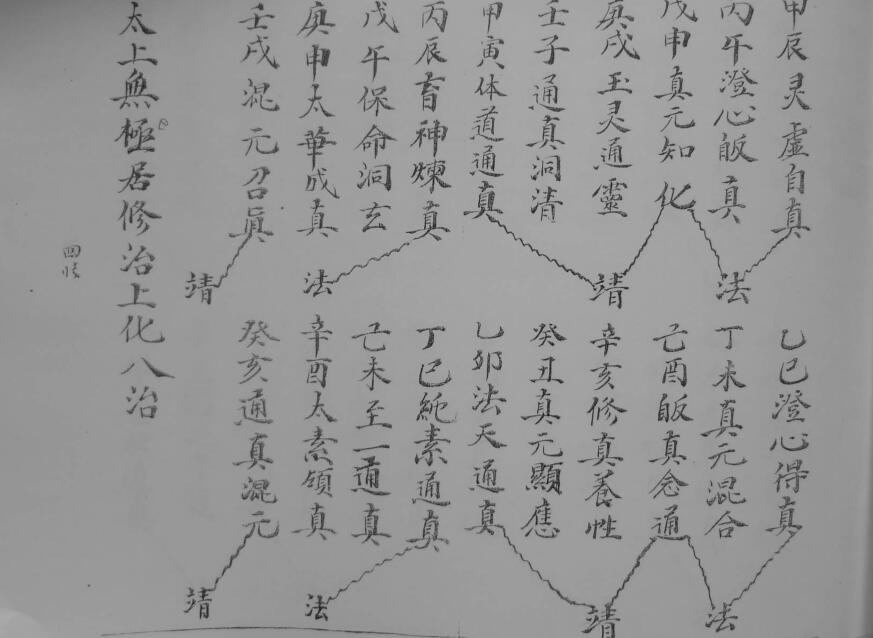 甲辰灵虚自真
乙巳澄心得真
丙午澄心皈真
丁未真元混合
法
法
戊申真元知化
己酉皈真念通
庚戌玉灵通靈
辛亥修真養性
靖
靖
壬子通真洞清
癸丑真元顯應
甲寅体道通真
乙卯法天通真
丙辰育神煉真
丁巳純素通真
戊午保命洞玄
己未至一通真
法
法
庚申太華成真
辛酉太素領真
壬戌混元召眞
癸亥通真混元
靖
靖
太上無極居修治上化八治